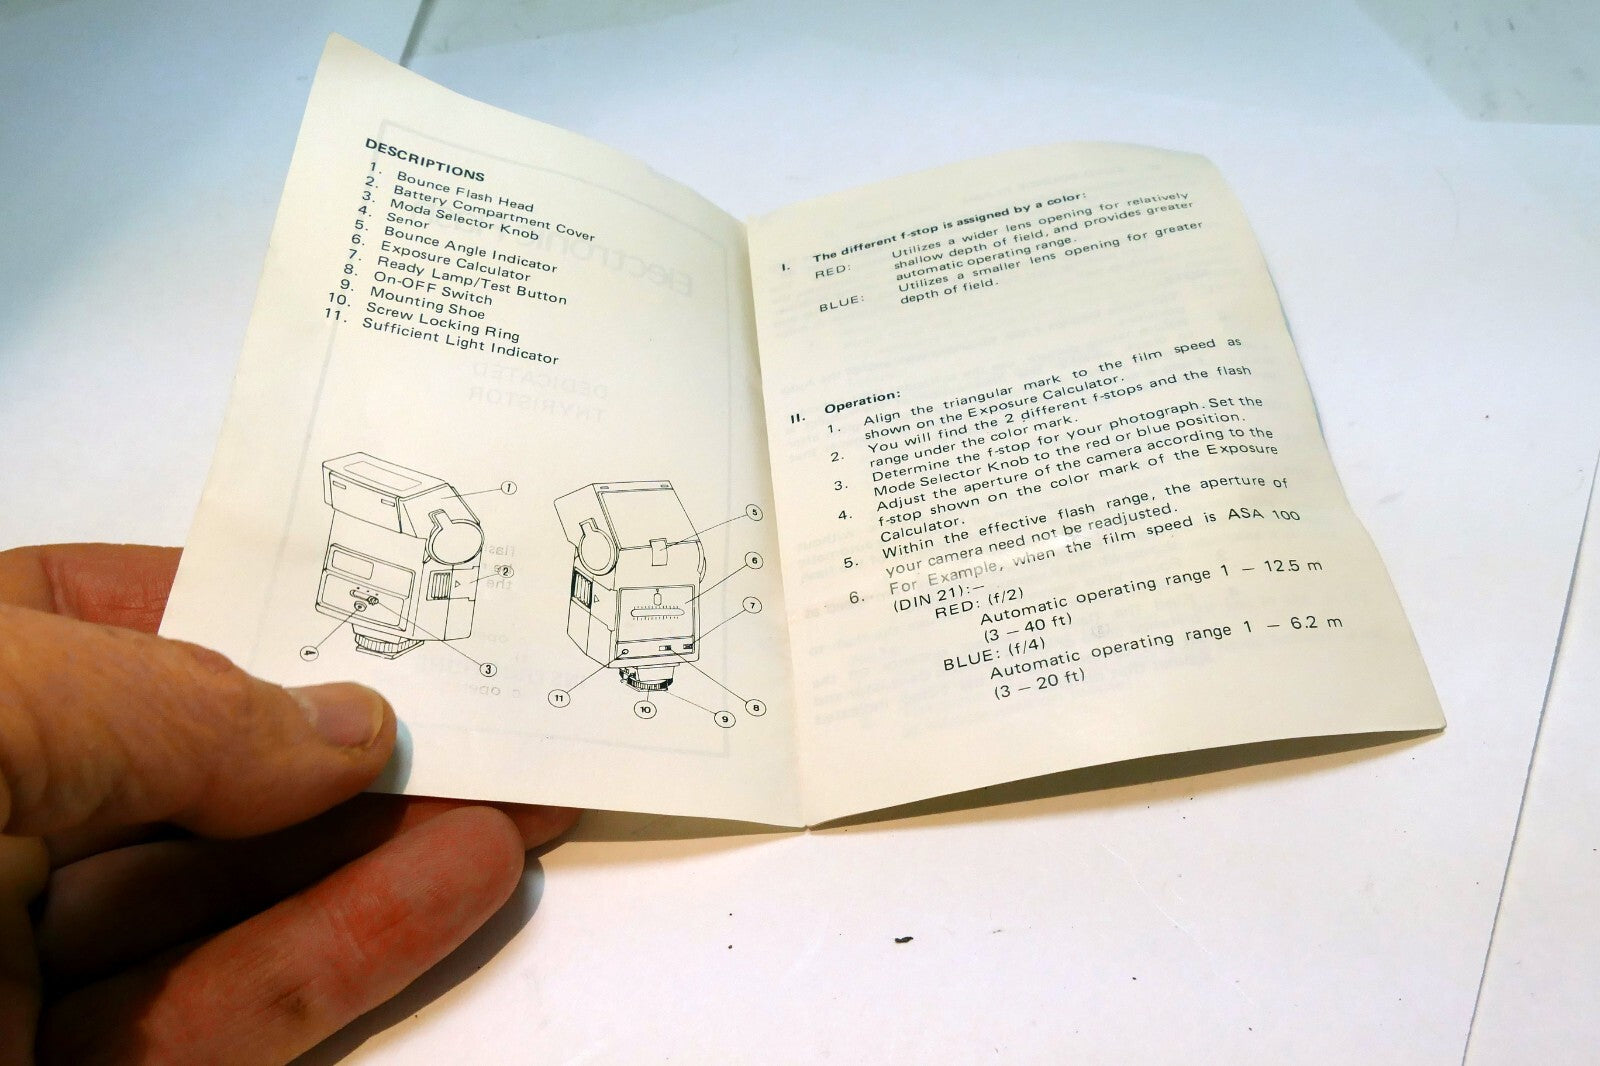 DESCRIPTIONS
1. Bounce Flash Head
2. Battery Compartment Cover
3. Moda Selector Knob
4. Senor
5. Bounce Angle Indicator
6. Exposure Calculator
7. Ready Lamp/Test Button
8. On-OFF Switch
9. Mounting Shoe
10. Screw Locking Ring
11. Sufficient Light Indicator
DEDICATED
THYRISTOR
1
2
3
4
5
6
7
8
9
10
11
I. The different f-stop is assigned by a color:
RED: Utilizes a wider lens opening for relatively
shallow depth of field, and provides greater
automatic operating range.
BLUE: Utilizes a smaller lens opening for greater
depth of field.
II. Operation:
1. Align the triangular mark to the film speed as
shown on the Exposure Calculator.
2. You will find the 2 different f-stops and the flash
range under the color mark.
3. Determine the f-stop for your photograph. Set the
Mode Selector Knob to the red or blue position.
4. Adjust the aperture of the camera according to the
f-stop shown on the color mark of the Exposure
Calculator.
5. Within the effective flash range, the aperture of
your camera need not be readjusted.
6. For Example, when the film speed is ASA 100
(DIN 21):–
RED: (f/2)
Automatic operating range 1 – 12.5 m
(3 – 40 ft)
BLUE: (f/4)
Automatic operating range 1 – 6.2 m
(3 – 20 ft)